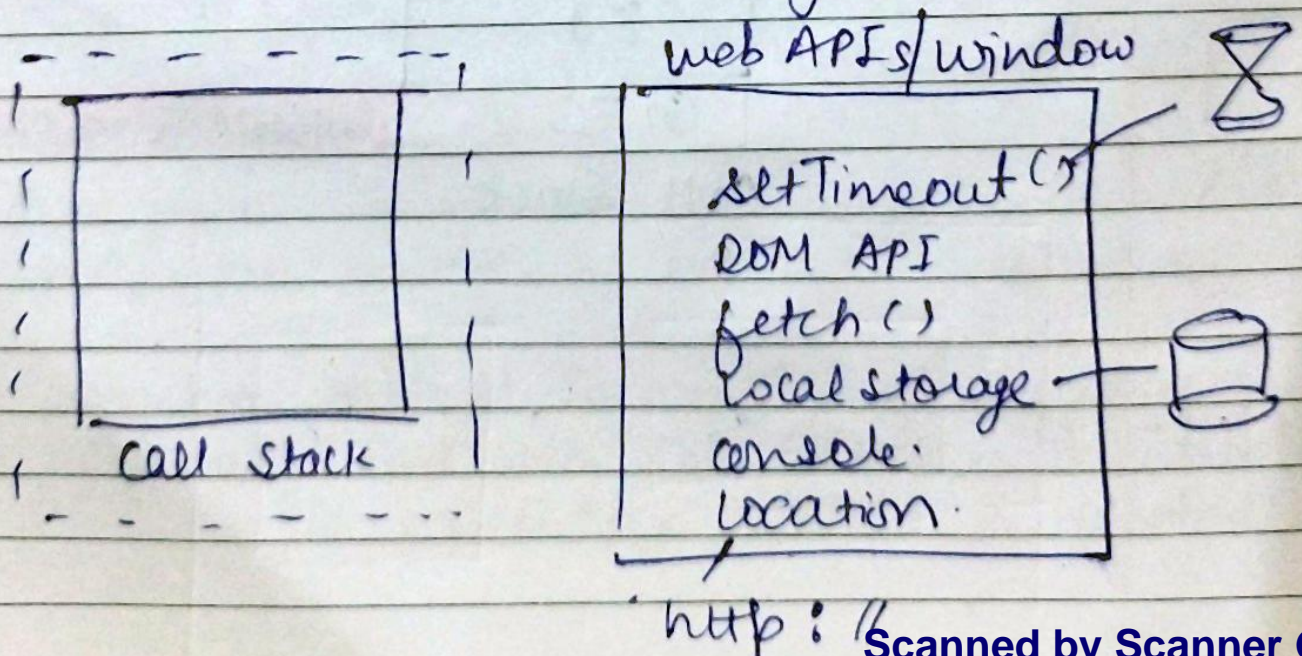 web APIs/window
setTimeout()
DOM API
fetch()
local storage
console.
location.
call stack
http://
Scanned by Scanner